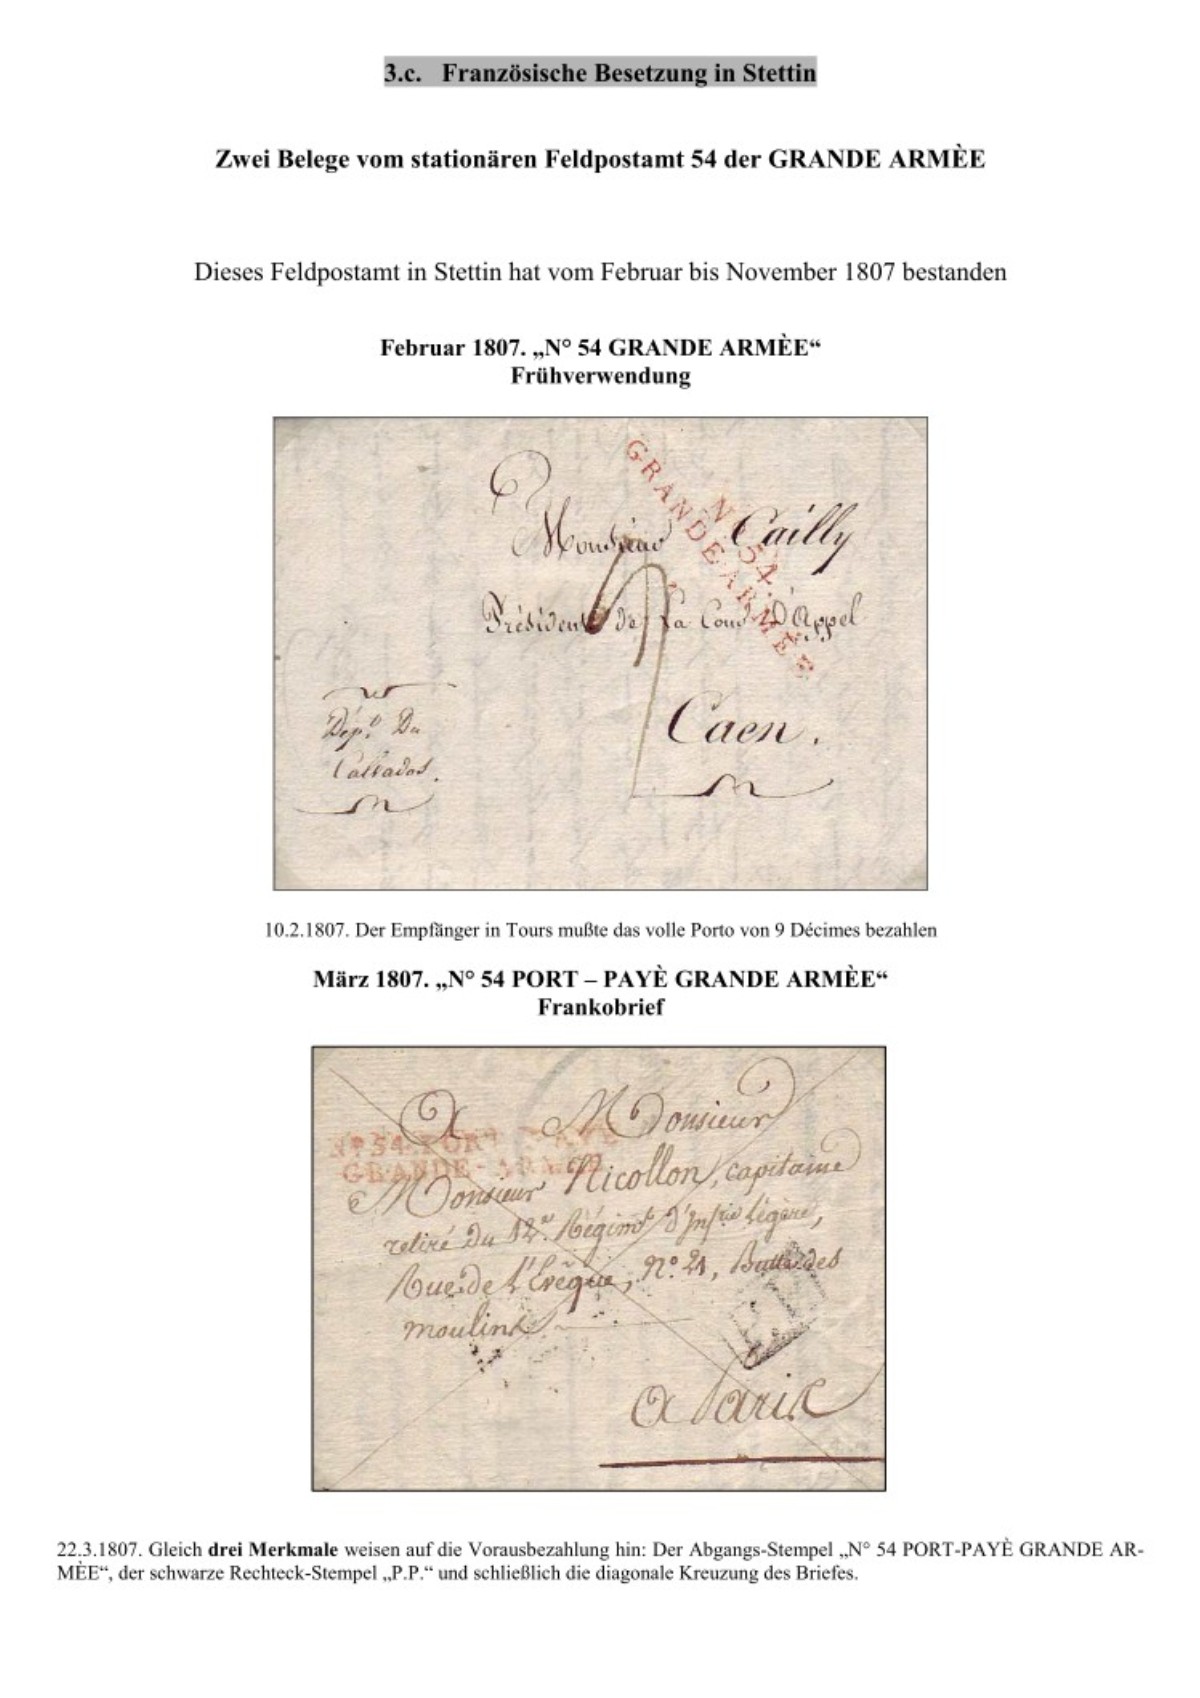 3.c. Französische Besetzung in Stettin
Zwei Belege vom stationären Feldpostamt 54 der GRANDE ARMÈE
Dieses Feldpostamt in Stettin hat vom Februar bis November 1807 bestanden
Februar 1807. „N° 54 GRANDE ARMÈE“
Frühverwendung
N° 54.
GRANDE-ARMÉE
Monsieur Cailly
Président de la Cour d'Appel
Caen.
Dépt. Du
Calvados.
10.2.1807. Der Empfänger in Tours mußte das volle Porto von 9 Décimes bezahlen
März 1807. „N° 54 PORT – PAYÈ GRANDE ARMÈE“
Frankobrief
A Monsieur
N° 54. PORT PAYÉ
GRANDE-ARMÉE
Monsieur Nicollon, capitaine
retiré du 12e. Régimt. d'Infrie légère,
Rue de l'Evêque, N°. 21, Butte des
moulins
P.P.
a Paris
22.3.1807. Gleich drei Merkmale weisen auf die Vorausbezahlung hin: Der Abgangs-Stempel „N° 54 PORT-PAYÈ GRANDE AR-
MÈE“, der schwarze Rechteck-Stempel „P.P.“ und schließlich die diagonale Kreuzung des Briefes.